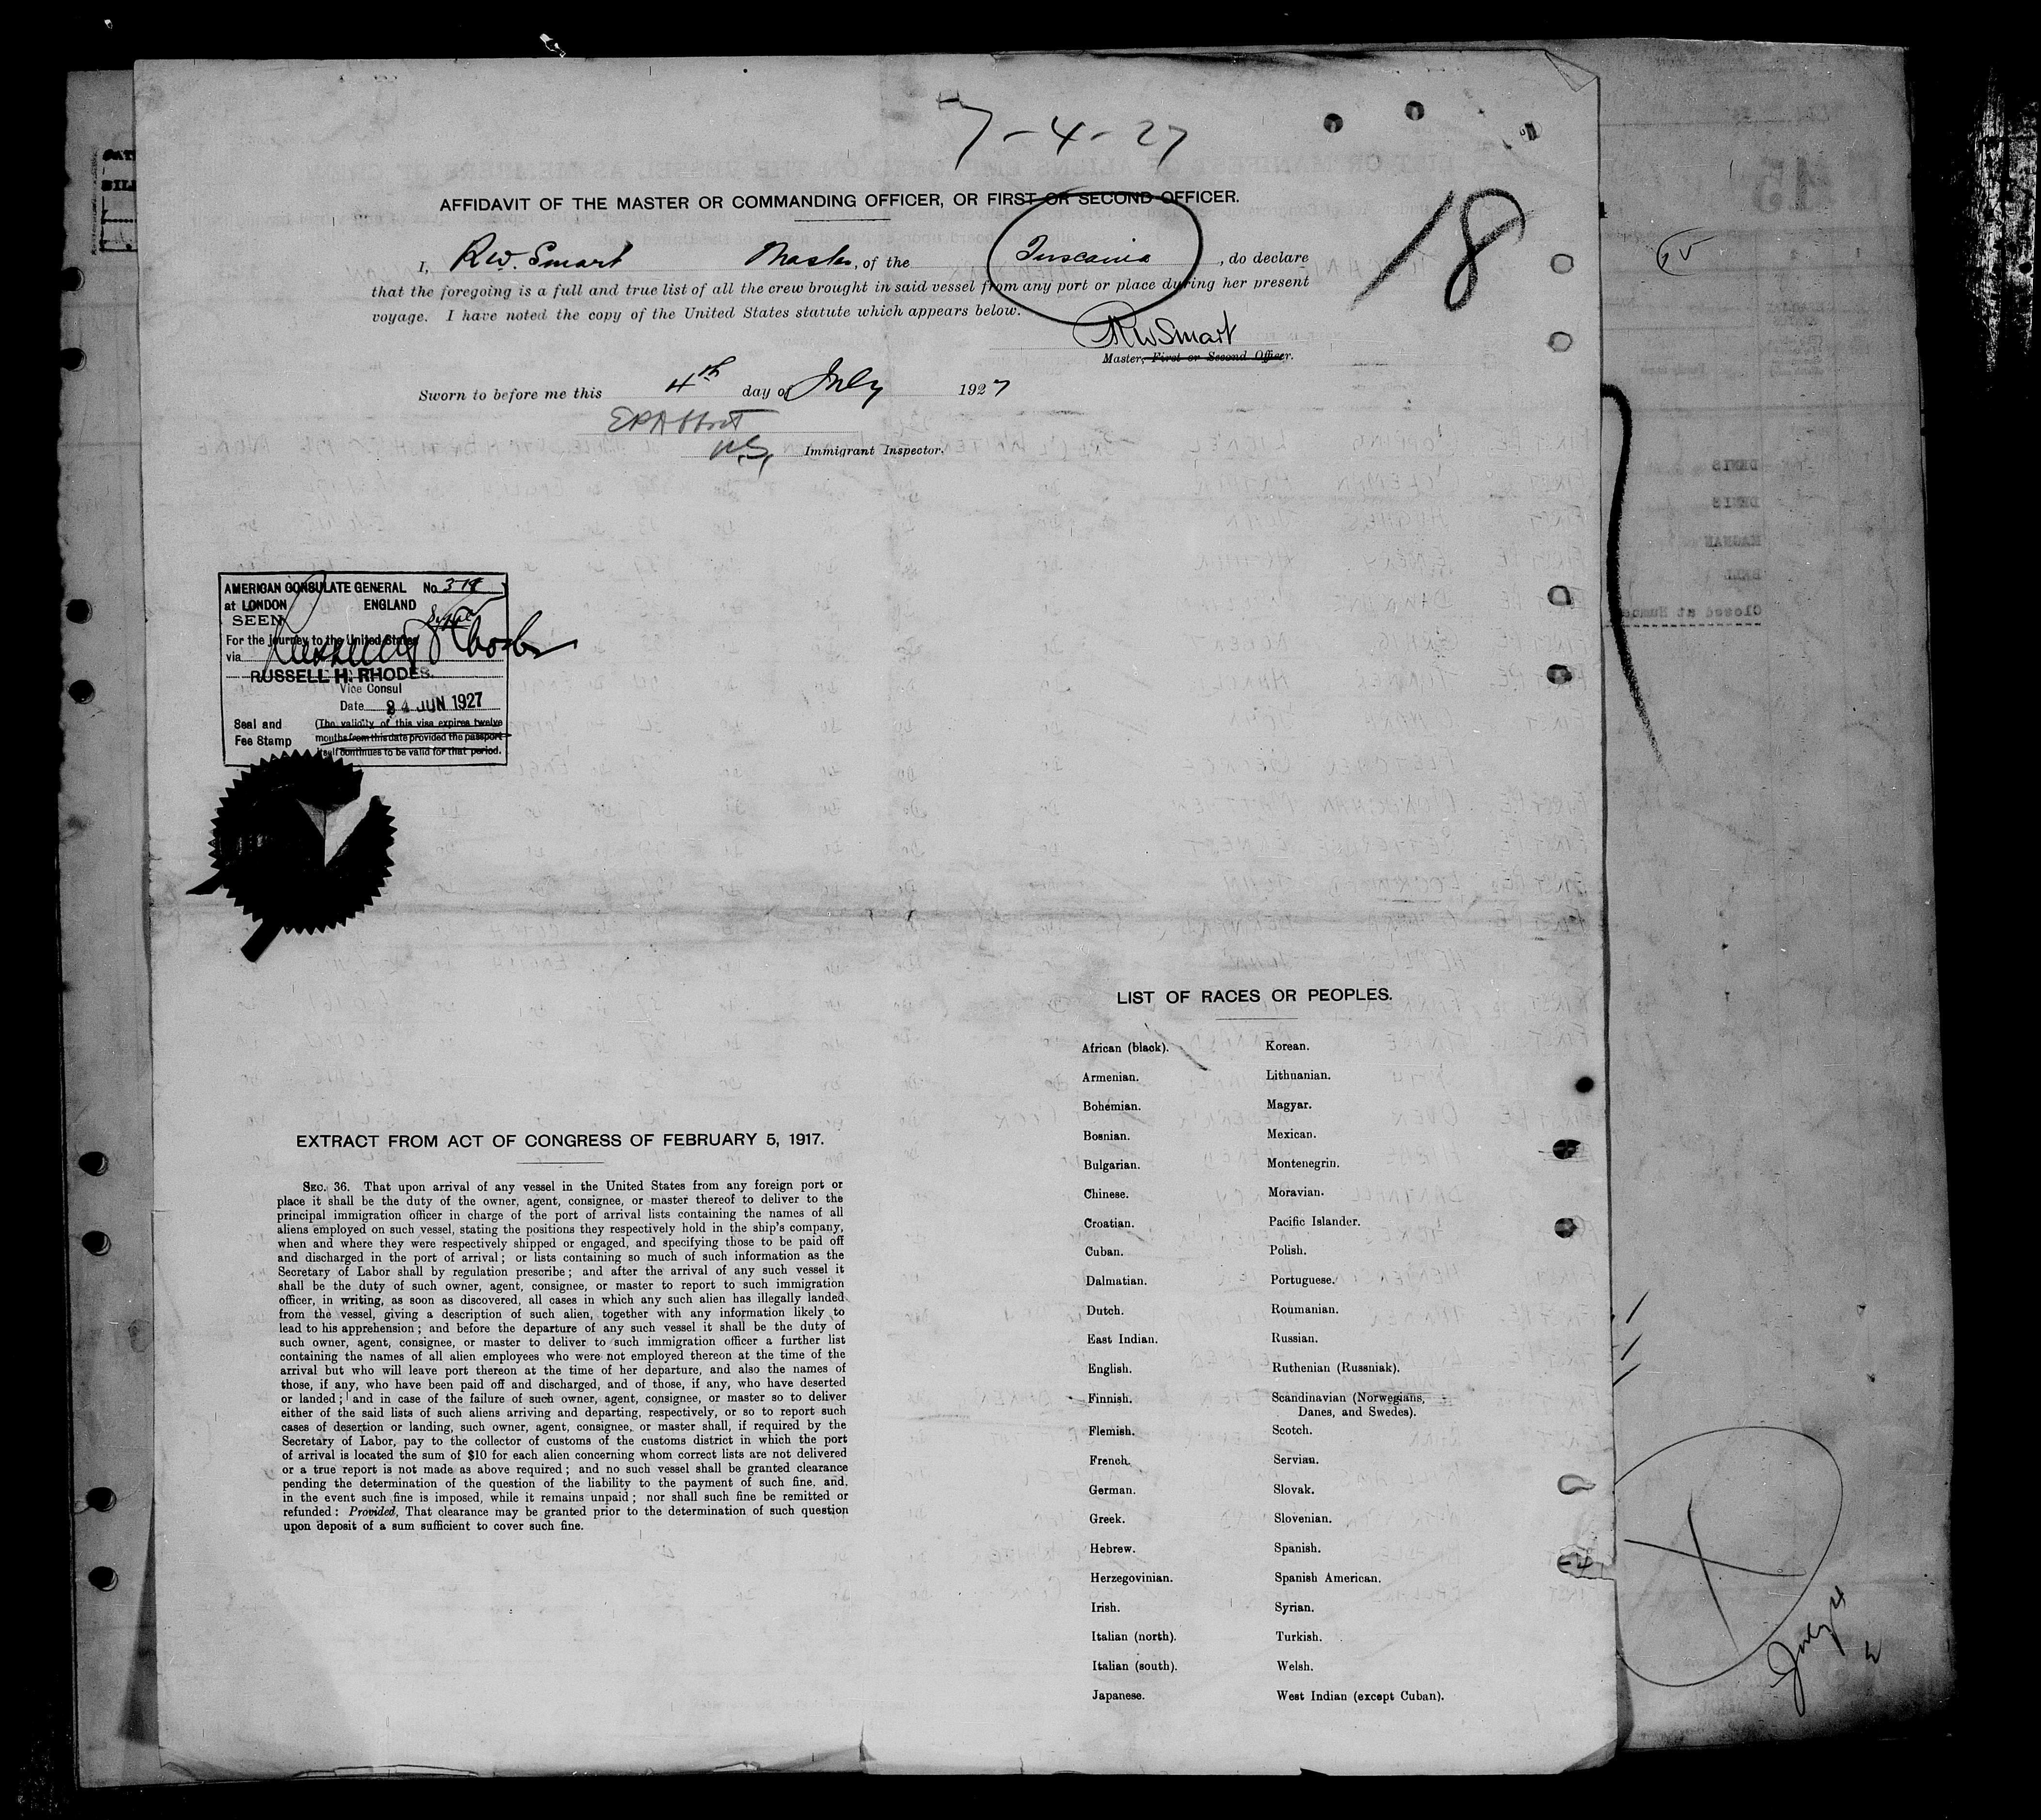 7-4-27
18
AFFIDAVIT OF THE MASTER OR COMMANDING OFFICER, OR FIRST OR SECOND OFFICER.
I, R.W. Smart Master, of the Tuscania, do declare
that the foregoing is a full and true list of all the crew brought in said vessel from any port or place during her present
voyage. I have noted the copy of the United States statute which appears below.
RWSmart
Master, First or Second Officer.
Sworn to before me this 4th day of July 1927
Immigrant Inspector.
AMERICAN CONSULATE GENERAL No.
at LONDON ENGLAND
SEEN
For the journey to the United States
via
RUSSELL H. RHODES.
Vice Consul
Date 24 JUN 1927
Seal and (The validity of this visa expires twelve
Fee Stamp months from this date provided the passport
itself continues to be valid for that period.
LIST OF RACES OR PEOPLES.
African (black). Korean.
Armenian. Lithuanian.
Bohemian. Magyar.
Bosnian. Mexican.
Bulgarian. Montenegrin.
Chinese. Moravian.
Croatian. Pacific Islander.
Cuban. Polish.
Dalmatian. Portuguese.
Dutch. Roumanian.
East Indian. Russian.
English. Ruthenian (Russniak).
Finnish. Scandinavian (Norwegians,
Danes, and Swedes).
Flemish. Scotch.
French. Servian.
German. Slovak.
Greek. Slovenian.
Hebrew. Spanish.
Herzegovinian. Spanish American.
Irish. Syrian.
Italian (north). Turkish.
Italian (south). Welsh.
Japanese. West Indian (except Cuban).
EXTRACT FROM ACT OF CONGRESS OF FEBRUARY 5, 1917.
SEC. 36. That upon arrival of any vessel in the United States from any foreign port or
place it shall be the duty of the owner, agent, consignee, or master thereof to deliver to the
principal immigration officer in charge of the port of arrival lists containing the names of all
aliens employed on such vessel, stating the positions they respectively hold in the ship's company,
when and where they were respectively shipped or engaged, and specifying those to be paid off
and discharged in the port of arrival; or lists containing so much of such information as the
Secretary of Labor shall by regulation prescribe; and after the arrival of any such vessel it
shall be the duty of such owner, agent, consignee, or master to report to such immigration
officer, in writing, as soon as discovered, all cases in which any such alien has illegally landed
from the vessel, giving a description of such alien, together with any information likely to
lead to his apprehension; and before the departure of any such vessel it shall be the duty of
such owner, agent, consignee, or master to deliver to such immigration officer a further list
containing the names of all alien employees who were not employed thereon at the time of the
arrival but who will leave port thereon at the time of her departure, and also the names of
those, if any, who have been paid off and discharged, and of those, if any, who have deserted
or landed; and in case of the failure of such owner, agent, consignee, or master so to deliver
either of the said lists of such aliens arriving and departing, respectively, or so to report such
cases of desertion or landing, such owner, agent, consignee, or master shall, if required by the
Secretary of Labor, pay to the collector of customs of the customs district in which the port
of arrival is located the sum of $10 for each alien concerning whom correct lists are not delivered
or a true report is not made as above required; and no such vessel shall be granted clearance
pending the determination of the question of the liability to the payment of such fine, and,
in the event such fine is imposed, while it remains unpaid; nor shall such fine be remitted or
refunded: Provided, That clearance may be granted prior to the determination of such question
upon deposit of a sum sufficient to cover such fine.